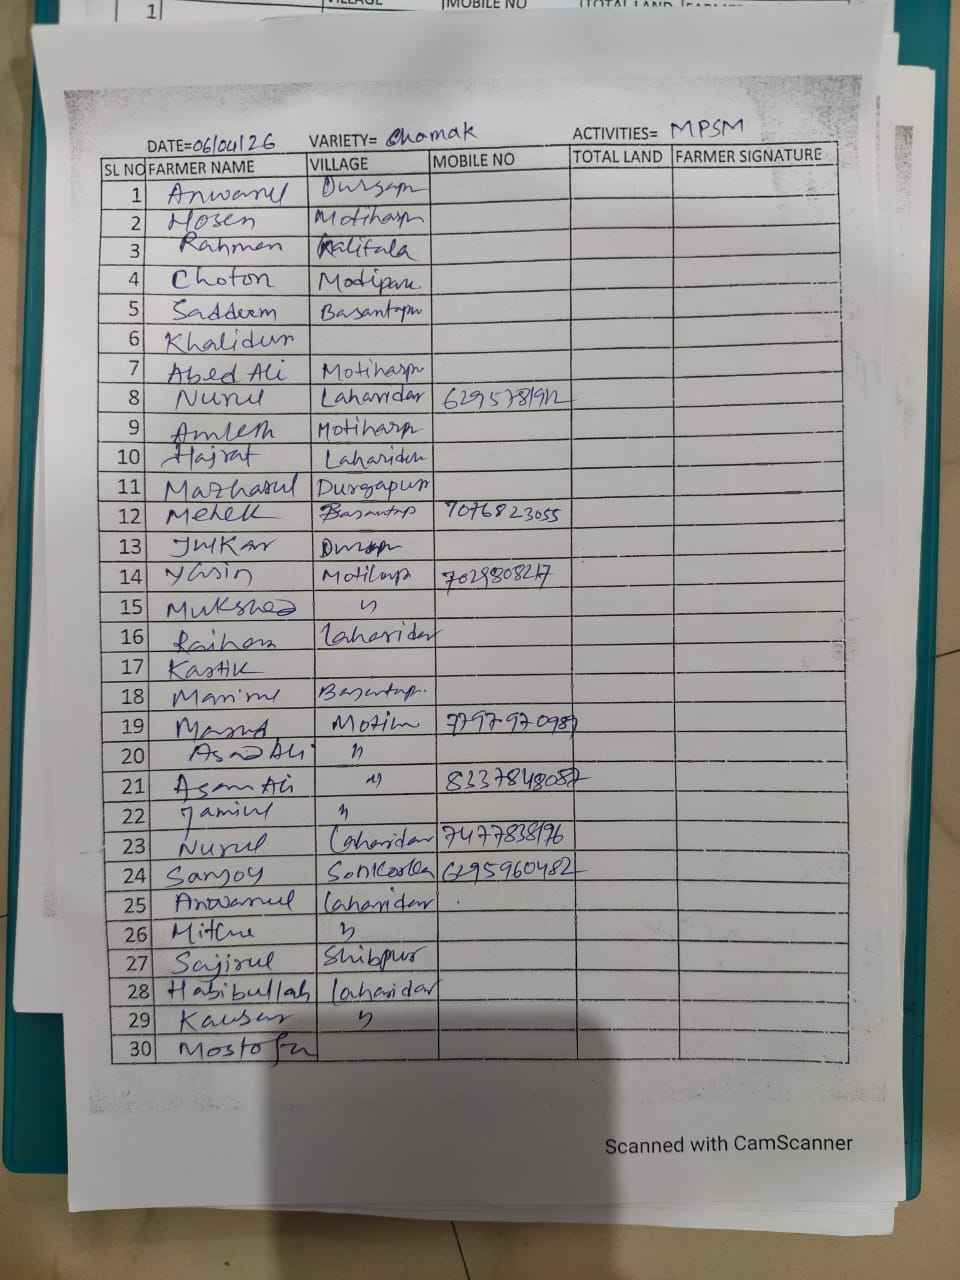 1
VILLAGE MOBILE NO TOTAL LAND
DATE=06/04/26 VARIETY= Chamak ACTIVITIES= MPSM
SL NO FARMER NAME VILLAGE MOBILE NO TOTAL LAND FARMER SIGNATURE
1 Anwarul Durgapr
2 Hosen Motiharpr
3 Rahman Kalitala
4 Choton Madipara
5 Saddeem Basantapr
6 Khalidur
7 Abed Ali Motiharpr
8 Nurul Laharidar
9 Amlesh Motiharpr
10 Hajrat Laharidar
11 Mazharul Durgapur
12 Mehek Basantap 7076823055
13 Julkar Durgapr
14 Yasin 7029808217
15 Mukshed "
16 Raihan Laharidar
17 Kartik
18 Manirul Basantap.
19 Masud Motihar
20 Asad Ali "
21 Asam Ali " 8337848087
22 Jamirul "
23 Nurul Laharidar 7477838196
24 Sanjoy 6295960482
25 Anwarul Laharidar
26 "
27 Sajirul Shibpur
28 Habibullah Laharidar
29 Kausar "
30 Mostofa
Scanned with CamScanner